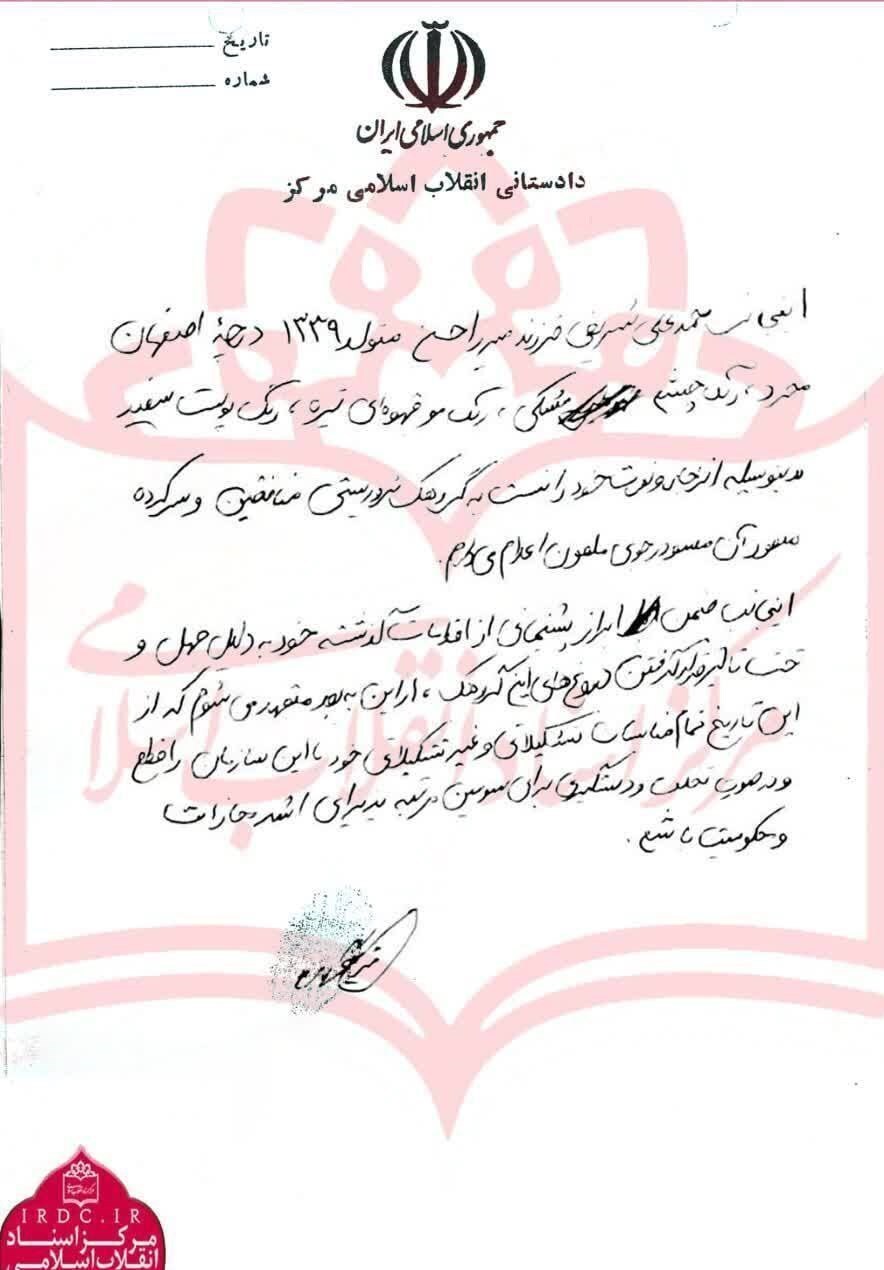 تاریخ
شماره
جمهوری اسلامی ایران
دادستانی انقلاب اسلامی مرکز
اینجانب محمدعلی شریفی فرزند میرزا حسن متولد ۱۳۳۹ درچۀ اصفهان
مجرد، رنگ چشم مشکی، رنگ مو قهوه‌ای تیره، رنگ پوست سفید
بدینوسیله انزجار و نفرت خود را نسبت به گروهک تروریستی منافقین و سرکرده
آن مسعود رجوی ملعون اعلام می‌دارم.
اینجانب ضمن ابراز پشیمانی از اقدامات گذشته خود به دلیل جهل و
تحت تاثیر قرار گرفتن دروغ‌های این گروهک، از این به بعد متعهد می‌شوم که از
این تاریخ تمام مناسبات تشکیلاتی و غیر تشکیلاتی خود با این سازمان را قطع
و در صورت تخلف و دستگیری برای سومین مرتبه پذیرای اشد مجازات
و محکومیت باشم.
مرکز اسناد انقلاب اسلامی
IRDC.IR
مرکز اسناد
انقلاب اسلامی